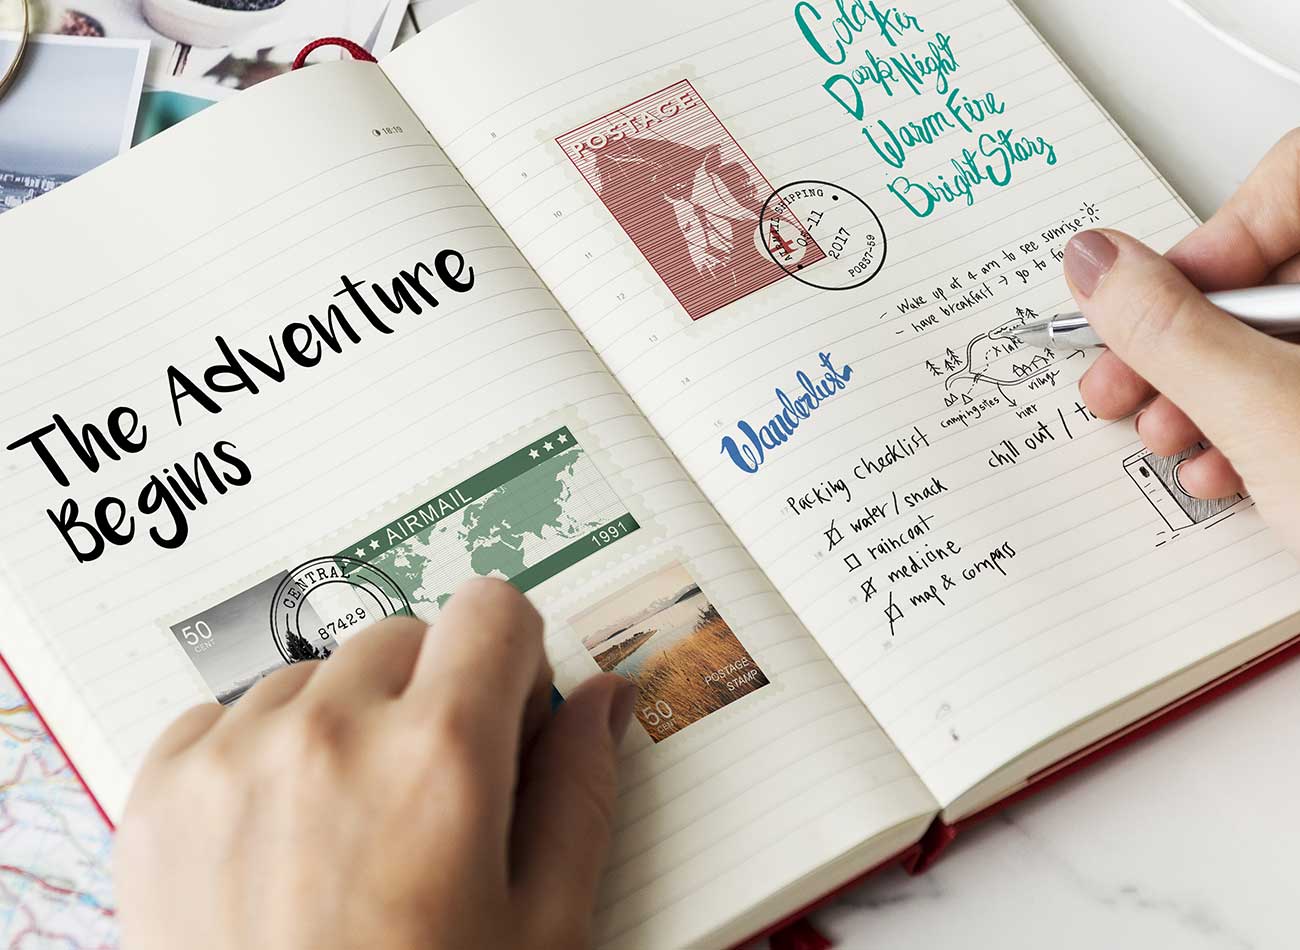 The Adventure
Begins
AIRMAIL
1991
CENTRAL
87429
50
CENT
POSTAGE
STAMP
50
CENT
POSTAGE
SHIPPING
2017
PO837-59
Cold Air
Dark Night
Warm Fire
Bright Stars
- Wake up at 4 am to see sunrise
- have breakfast → go to
lake
village
campingsites
river
Wanderlust
chill out /
Packing checklist
water / snack
raincoat
medicine
map & compass
8
9
10
11
12
13
14
15